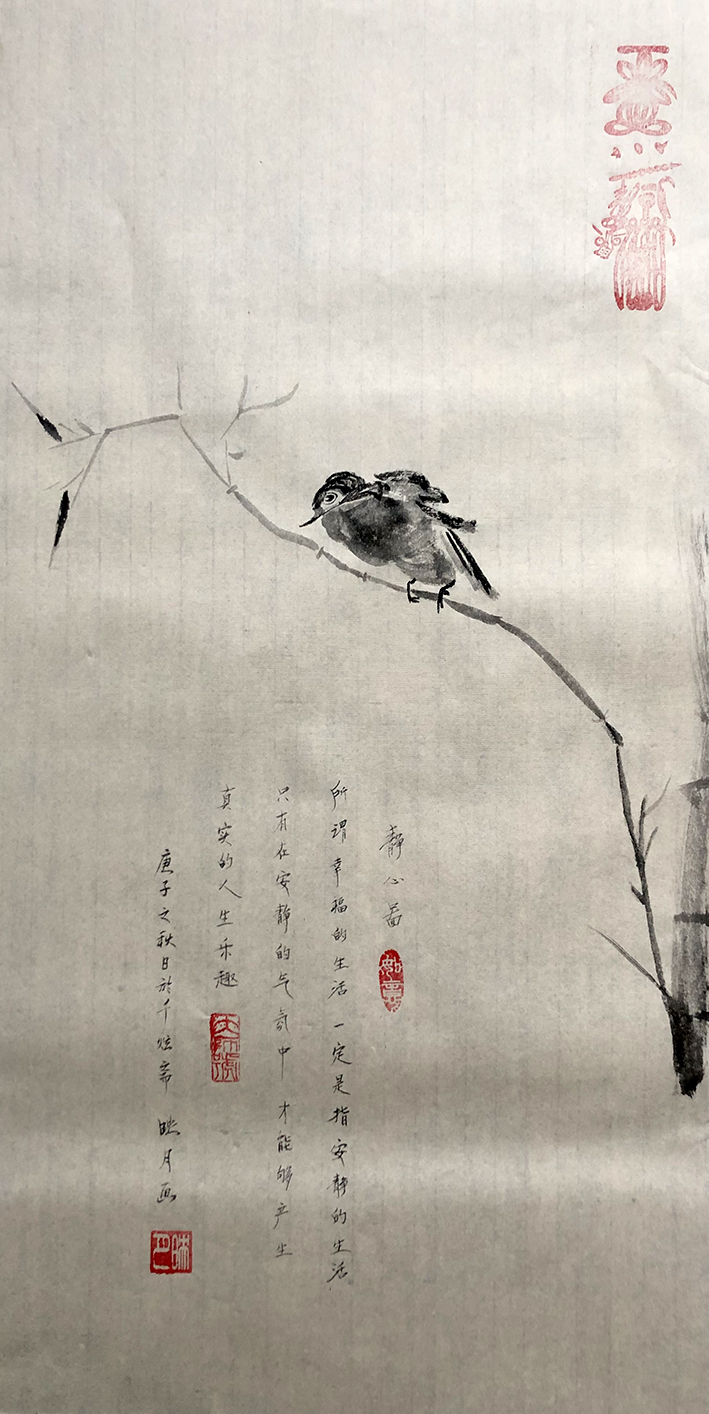 静心畣
所谓幸福的生活 一定是指安静的生活
只有在安静的气氛中 才能够产生
真实的人生乐趣
庚子之秋日於千炫斋 映月画
如意